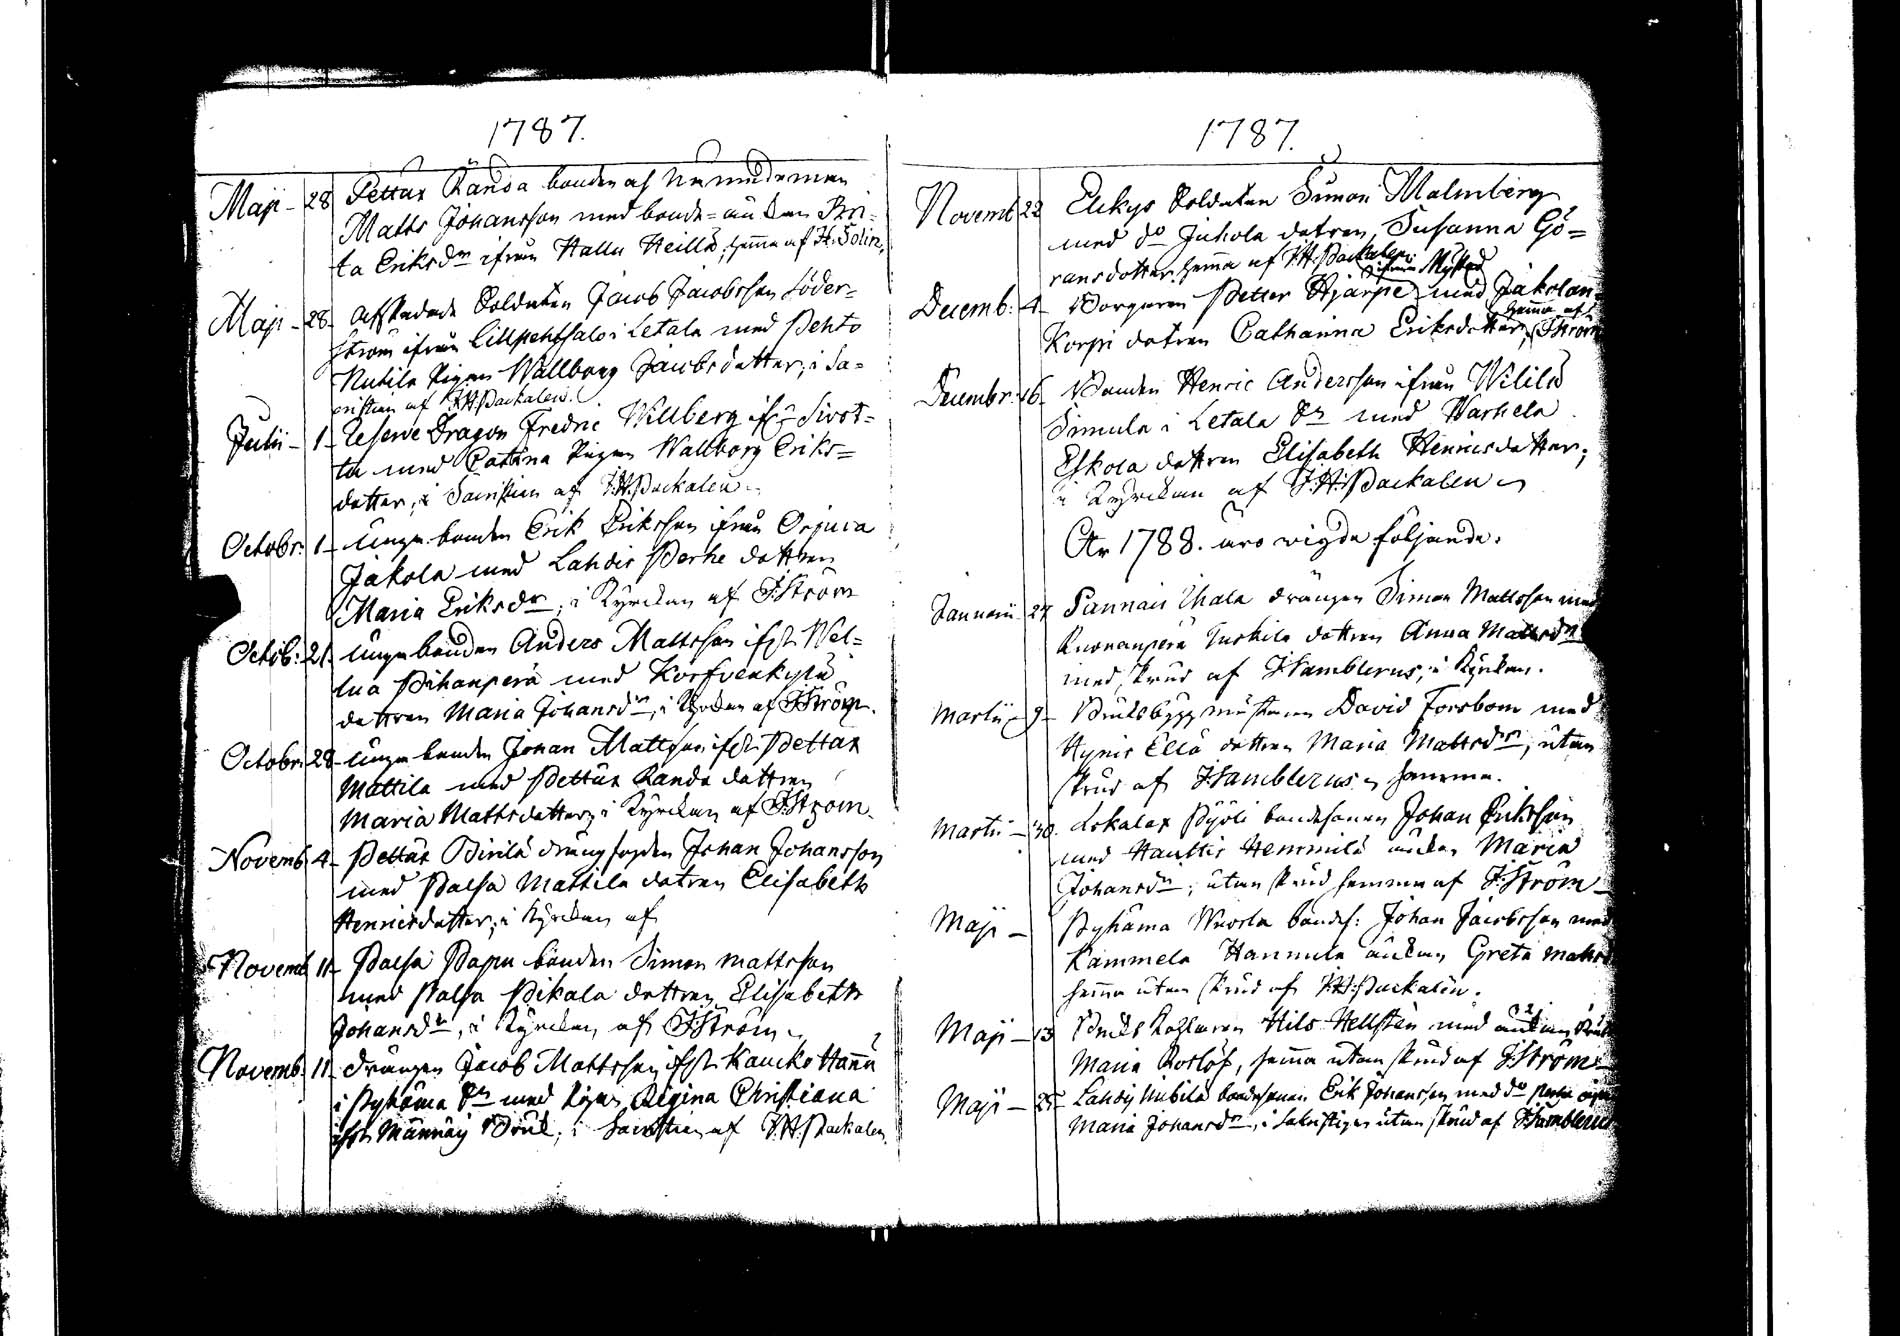 1787.
Maji - 28 Pettäx Ränsä bonden och Nämndeman
Matts Johansson med bonde=änckan Bri=
ta Eriksdr ifrån Hallu Heillä, hema af H. Tolin.
Maji - 28 Afskedade Soldaten Jacob Jacobsson Söder=
ström ifrån i Letala med Pehto
Nukila Pigan Wallborg Jacobsdotter; i Sa=
cristian af J.H. Backalen.
Julii - 1 - Reserve Dragon Fredric Willberg ifrån Sivot=
tu med Pigan Wallborg Eriks=
dotter; i Sacristian af J.H. Backalen
Octobr: 1 - Unga bonden Erik Eriksson ifrån Orjura
Jakola med Lahdis Perhe dottren
Maria Eriksdr, i Kyrckan af J. Ström
Octob: 21. Unga bonden Anders Mattsson ifrån Wel=
lua Pihanperä med Korfvenkylä
dottren Maria Johansdr, i Kyrckan af J. Ström.
Octobr: 28 - Unga bonden Johan Mattsson ifrån Pettäx
Mattila med Pettäx Randa dottren
Maria Mattsdotter; i Kyrckan af J. Ström.
Novemb. 4 - Pettäx drängfogden Johan Johansson
med Palsa Mattila dotren Elisabeth
Henricsdotter; i Kyrckan af
Novemb. 11 - Palsa Papu bonden Simon Mattsson
med Palsa Pikala dottren Elisabeth
Johansdr, i Kyrckan af J. Ström
Novemb: 11 - Drängen Jacob Mattsson ifrån Kaucko Hannu
i Pyhäma Sn med Pigan Regina Christiana
ifrån Männäis Bruk; i Sacristian af J.H. Backalen.
1787.
Novemb. 22 Elkys Soldaten Simon Malmberg
med do Jukola dotren Susanna Gö=
ransdotter hema af J.H. Backalen.
Decemb: 4 - Borgaren Petter Hjärpe ifrån Nystad med Jakolan
Korpi dotren Catharina Eriksdotter, hema af J. Ström
Decembr: 16. Bonden Henric Andersson ifrån Wililä
Simula i Letala Sn med Warhela
Eskola dottren Elisabeth Henricsdotter;
i Kyrckan af J.H. Backalen
År 1788. äro wigde följande:
Januarii 27 Pannais Uhala drängen Simon Mattsson med
Ruonanperä Tuskila dottren Anna Mattsdr
med skrud af J. Hamblerus, i Kyrckan.
Martii - 9 - Bruksbyggmästaren David Forsbom med
Hynis Ellä dottren Maria Mattsdr, utan
skrud af J. Hamblerus hemma.
Martii - 30. Lokalax Pyöli bondesonen Johan Eriksson
med Hauttis Hemmilä änckan Maria
Johansdr, utan skrud hemma af J. Ström
Maji - Pyhäma Wuorla bondes: Johan Jacobsson med
Kammela Hannula änckan Greta Matts
hema utan skrud af J.H. Backalen.
Maji - 13 Bruks Kohlaren Nils Hellsten med änckan
Maria Roslöf, hema utan skrud af J. Ström
Maji - 25 - Lahdis Nubilä bondesonen Erik Johansson med do Perhe pigan
Maria Johansdr, i Sakristigan utan skrud af J. Hamblerus